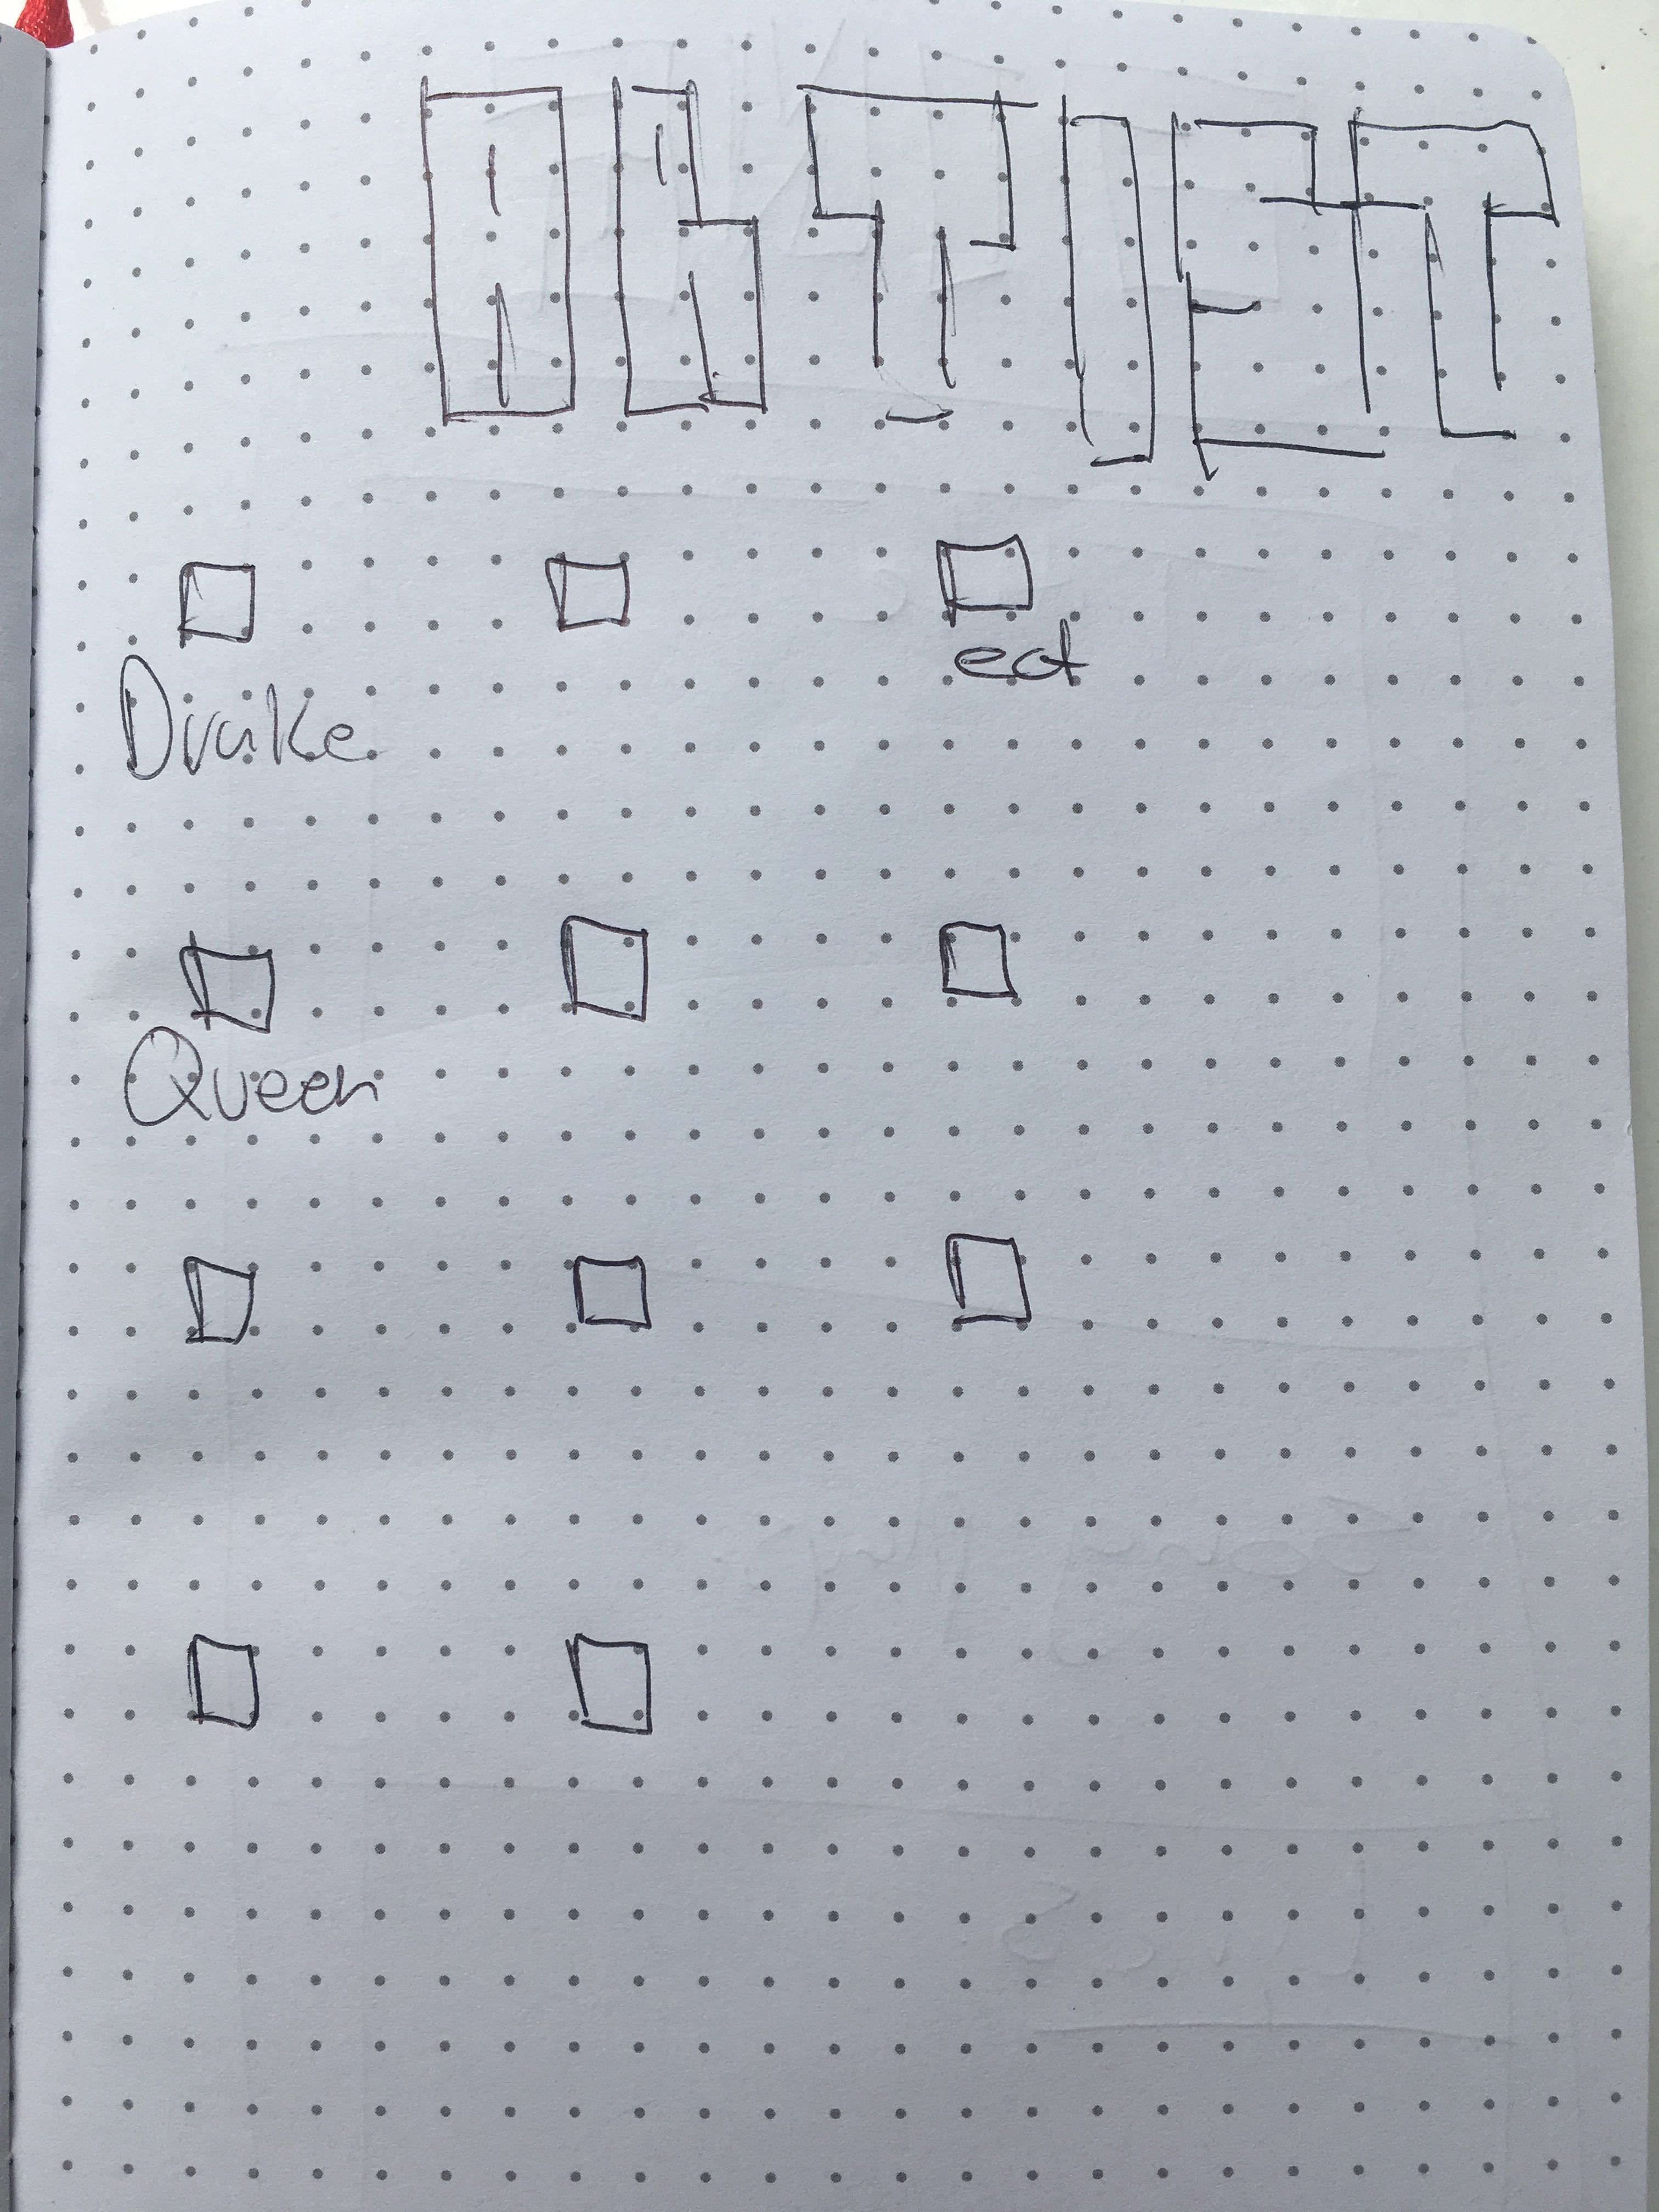 ARTIST
Drake ect
Queen